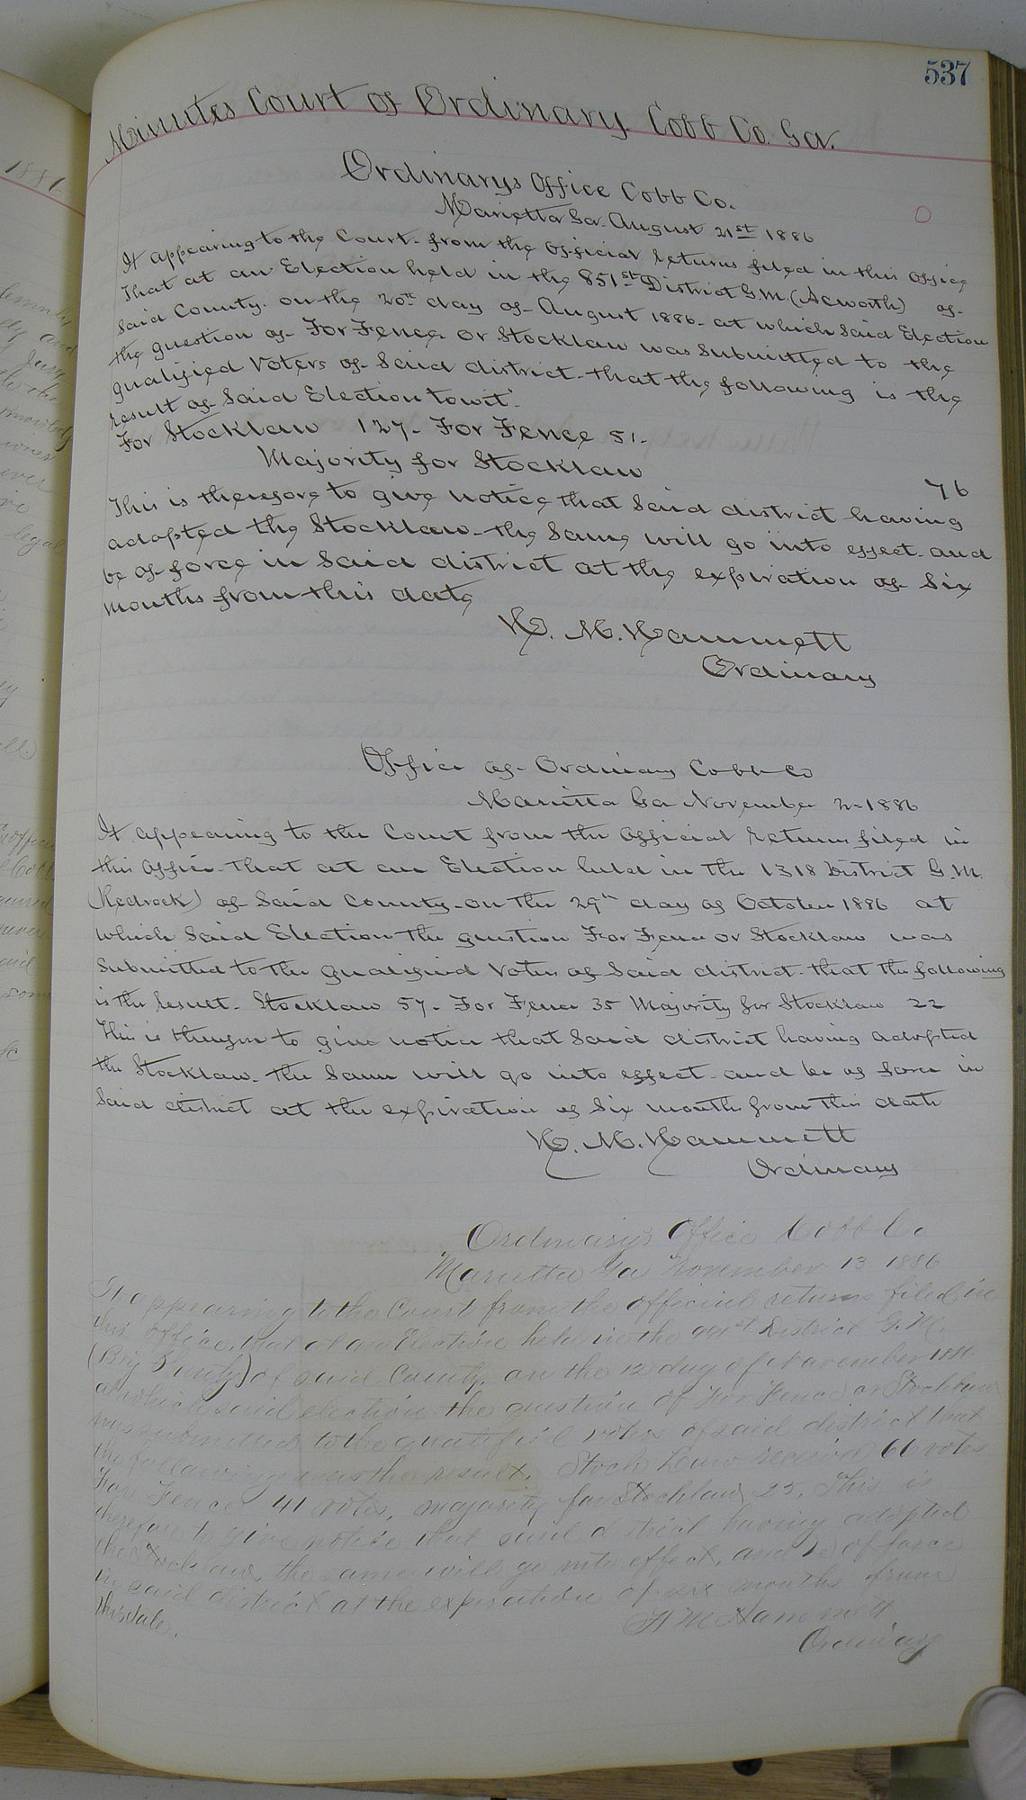 537
Minutes Court of Ordinary Cobb Co. Ga.
Ordinarys Office Cobb Co.
Marietta Ga. August 21st 1886
It appearing to the Court from the official returns filed in this office
That at an Election held in the 851st District G.M. (Acworth) of
Said County on the 20th day of August 1886 at which Said Election
the question of For Fence or Stocklaw was Submitted to the
qualified Voters of Said district that the following is the
result of Said Election towit:
For Stocklaw 127. For Fence 51.
Majority for Stocklaw 76
This is therefore to give notice that Said district having
adopted the Stocklaw the Same will go into effect and
be of force in Said district at the expiration of Six
months from this date
H. M. Hammett
Ordinary
Office of Ordinary Cobb Co
Marietta Ga November 2 1886
It appearing to the Court from the official returns filed in
this office that at an Election held in the 1318 District G.M.
(Redrock) of Said County on the 29th day of October 1886 at
which Said Election the question For Fence or Stocklaw was
Submitted to the qualified Voters of Said district that the following
is the result. Stocklaw 57. For Fence 35 Majority for Stocklaw 22
This is therefore to give notice that Said district having adopted
the Stocklaw. the Same will go into effect and be of force in
Said district at the expiration of Six months from this date
H. M. Hammett
Ordinary
Ordinary's Office Cobb Co.
Marietta Ga November 13 1886
It appearing to the Court from the official returns filed in
this office, that at an Election held in the 991st District G.M.
(Big Shanty) of said County, on the 12 day of November 1886
at which said election the question of For Fence or Stocklaw
was submitted to the qualified voters of said district that
the following was the result. Stock Law received 66 votes
For Fence 41 votes, majority for Stocklaw 25. This is
therefore to give notice that said district having adopted
the Stocklaw, the same will go into effect, and be of force
in said district at the expiration of six months from
this date.
H M Hammett
Ordinary